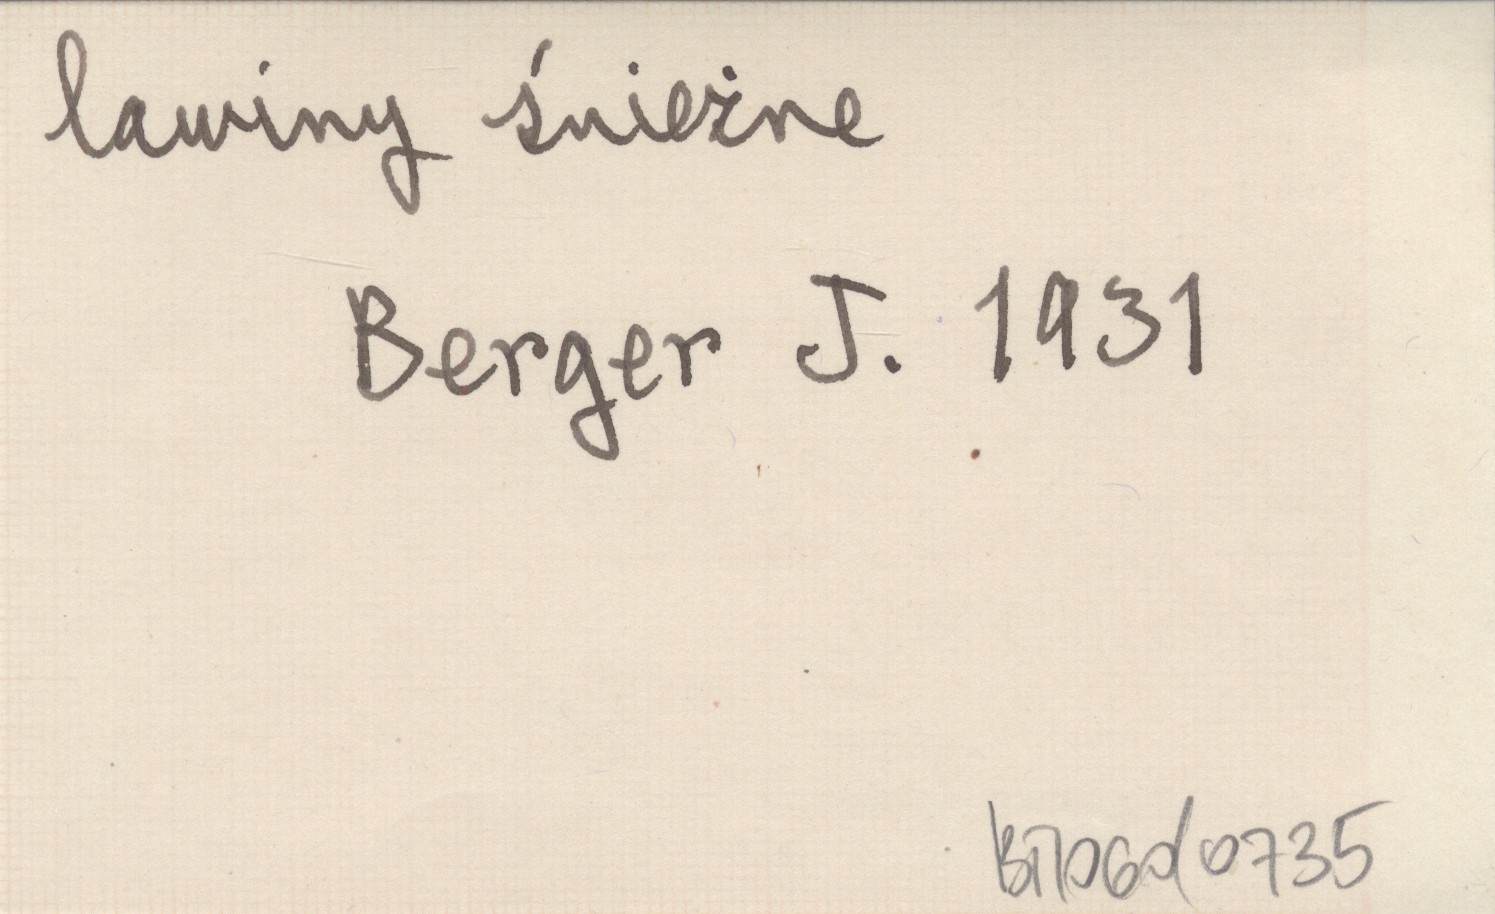 lawiny śnieżne
Berger J. 1931
0735